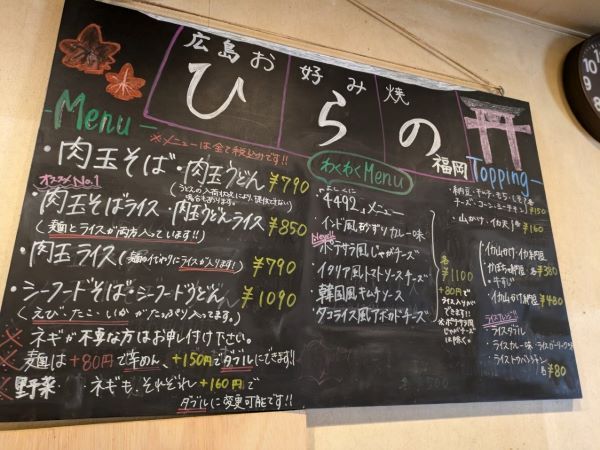 広島お好み焼
ひらの
福岡
Menu
※メニューは全て税込みです!!
・肉玉そば・肉玉うどん ¥790
(うどんの入荷状況により、提供できない場合もあります。)
オススメNo.1
・肉玉そばライス・肉玉うどんライス ¥850
(麺とライスが両方入っています!!)
・肉玉ライス(麺の代わりにライスが入ります!) ¥790
・シーフードそば・シーフードうどん ¥1090
(えび、たこ、いかがたっぷり入ってます。)
※ネギが不要な方はお申し付け下さい。
※麺は+80円で辛めん、+150円でダブルにできます!!
※野菜・ネギもそれぞれ+160円で
ダブルに変更可能です!!
わくわくMenu
よしくに
「4492」メニュー
・インド風砂ずりカレー味
New!!
・ポテサラ風じゃがチーズ
・イタリア風トマトソースチーズ
・韓国風キムソース
・タコライス風アボカドチーズ
各¥1100
+80円でライス入りができます!!
※ポテサラ風じゃがチーズは除く。
Topping
チーズ・コーン・シーチキン ¥150
・山かけ・イカ天 ¥160
・イカ山かけ・イカ納豆
・かばちゃ納豆 各¥380
・牛すじ
・イカ山かけ納豆 ¥480
ライスアレンジ
・ライスダブル
・ライスカレー味・ライスガーリック味
・ライストウバンジャン
各¥80